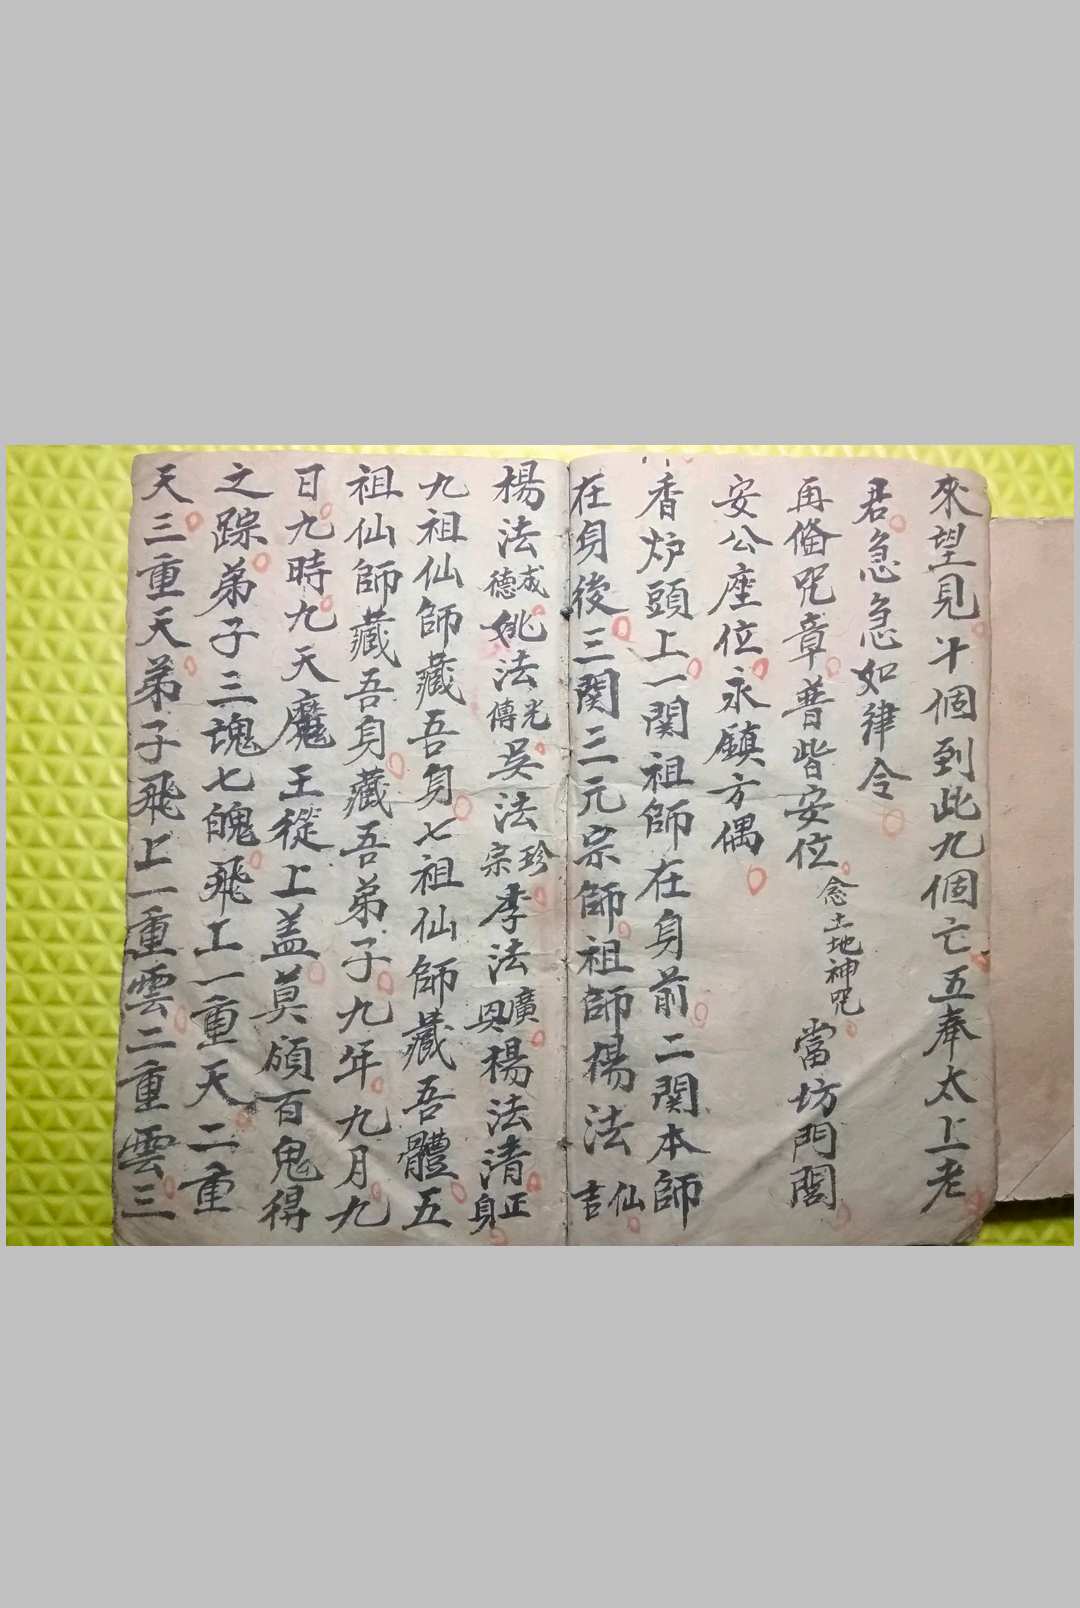 來望見斗個到此九個亡五奉太上老
君急急如律令
再俻咒章普皆安位念土地神咒當坊門閣
安公座位永鎮方偶
香炉頭上一関祖師在身前二関本師
在身後三関三元宗師祖師楊法仙吉
楊法成德姚法光傳吳法珍宗李法廣恩楊法清正身
九祖仙師藏吾身七祖仙師藏吾體五
祖仙師藏吾身藏吾弟子九年九月九
日九時九天魔王從上盖莫頒百鬼得
之踪弟子三魂七魄飛上一重天二重
天三重天弟子飛上一重雲二重雲三